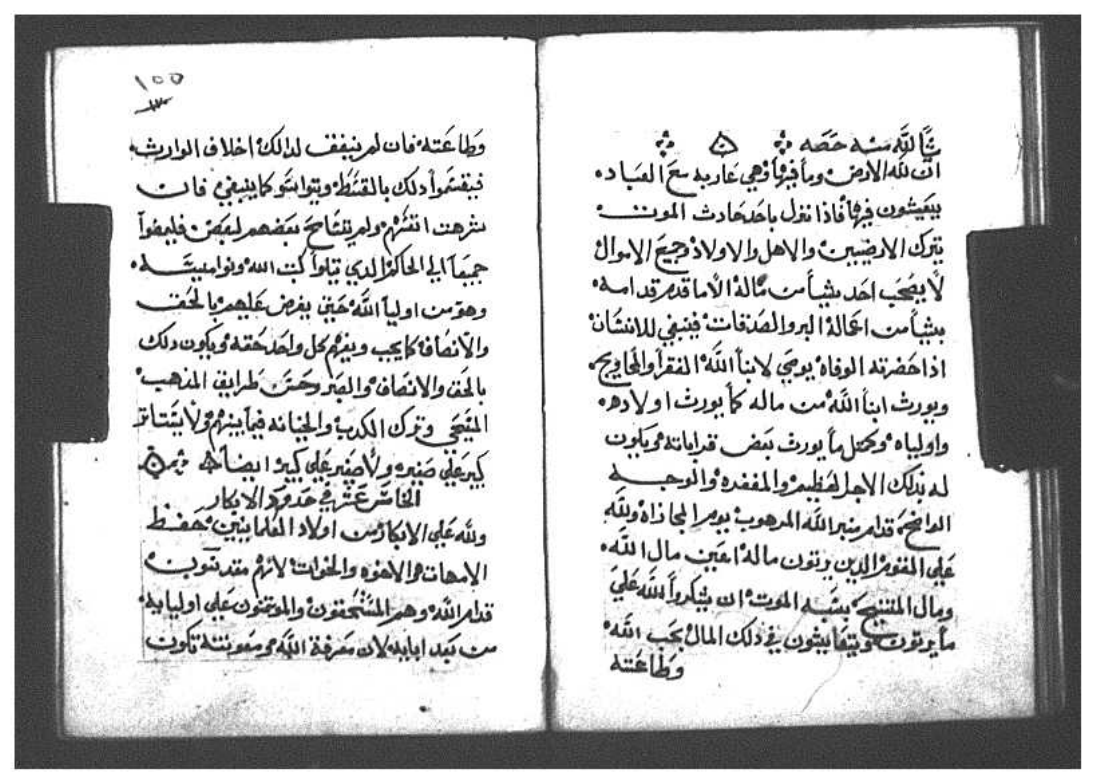 شا الله منه حصه
ان لله الارض وما فيها وهي عاريه مع العباد
يتعيشون فيها فاذا نزل باحد حادث الموت
يترك الارضيين والاهل والاولاد وجميع الاموال
لا يصحب احد شيأ من ماله الا ما قدم قدامه
بشيأ من اعماله البر والصدقات فينبغي للانسان
اذا حضرته الوفاه يوصي لابنأ الله الفقرا والمحاويج
ويورث ابنأ الله من ماله كما يورث اولاده
واولياه ما يورث بعض قراباته ويكون
له بذلك الاجر العظيم والمغفره والوجه
الواضح قدام منبر الله المرهوب يوم المجازاه ولله
علي القوم الذين يرتون ماله اعني مال الله
ومال المتنيح بشبه الموت ان يشكروا لله علي
ما يرتون في ذلك المال بحب الله
وطاعته
١٥٥
وطاعته فان لم يتفق لذالك اخلاف الوارثه
فيقتسموا ذلك بالقسط كما ينبغي فان
شرهت انفسهم ولم تتسامح بعضهم لبعض
جميعا الي الحاكم الذي كتب الله ونواميسه
وهو من اوليأ الله حتي يفرض عليهم بالحق
والانصاف كما يجب ويفهم كل واحد حقه ويكون ذلك
بالحق والانصاف والصبر وحسن طرايق المذهب
المسيحي وترك الكذب والخيانه فيما بينهم ولا
كبير علي صغير ولا صغير علي كبير ايضا
الخامس عشر في حدود الابكار
ولله علي الابكار من اولاد العلمانيين حفظ
الامهات والاخوه والخوات لانهم
قدام الله وهم المستحقون والموتمنون علي اوليايه
من بعد ابايه لان معرفة الله ومعونته تكون